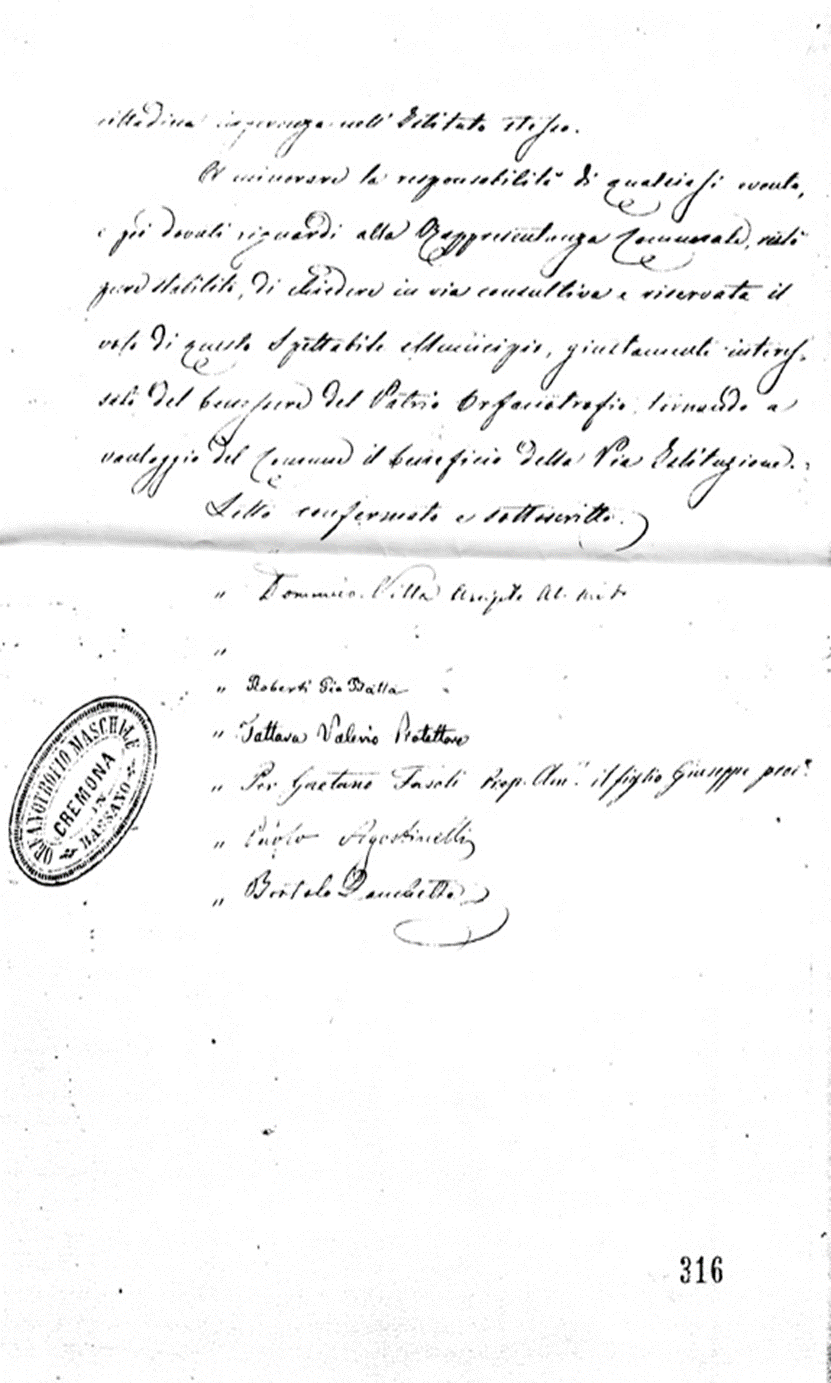 cittadina ingerenza nell' Istituto stesso.
A minorare la responsabilità di qualsiasi evento,
e pei dovuti riguardi alla Rappresentanza Comunale, restò
pure stabilito, di chiedere in via consultiva e riservata il
voto di questo Spettabile Municipio, giustamente interes-
sato del benessere del Patrio Orfanotrofio, tornando a
vantaggio del Comune il beneficio della Pia Istituzione.
Letto confermato e sottoscritto.
" Domenico Villa
"
" Roberti Gio Batta
" Tattara Valerio Protettore
" Per Gaetano Fasoli Prop. Am.e il figlio Giuseppe
" Paolo Agostinelli
" Bortolo Zanchetta
ORFANOTROFIO MASCHILE
CREMONA
IN
BASSANO
316